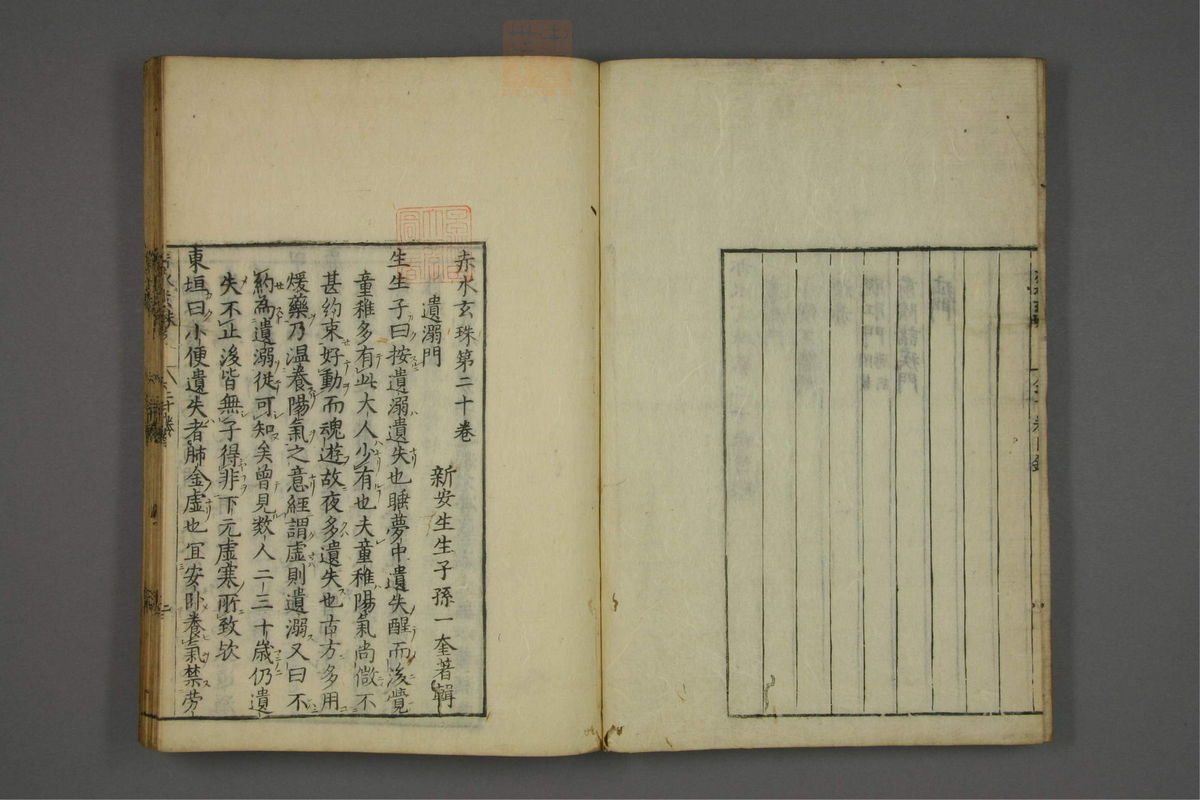 赤水玄珠第二十卷
新安生生子孫一奎著輯
遺溺門
生生子曰按遺溺遺失也睡夢中遺失醒而後覺
童稚多有此大人少有也夫童稚陽氣尚微不
甚約束好動而魂遊故夜多遺失也古方多用
煖藥乃温養陽氣之意經謂虛則遺溺又曰不
約為遺溺從可知矣曾見数人二三十歲仍遺
失不止後皆無子得非下元虛寒所致欤
東垣曰小便遺失者肺金虛也宜安卧養氣禁劳